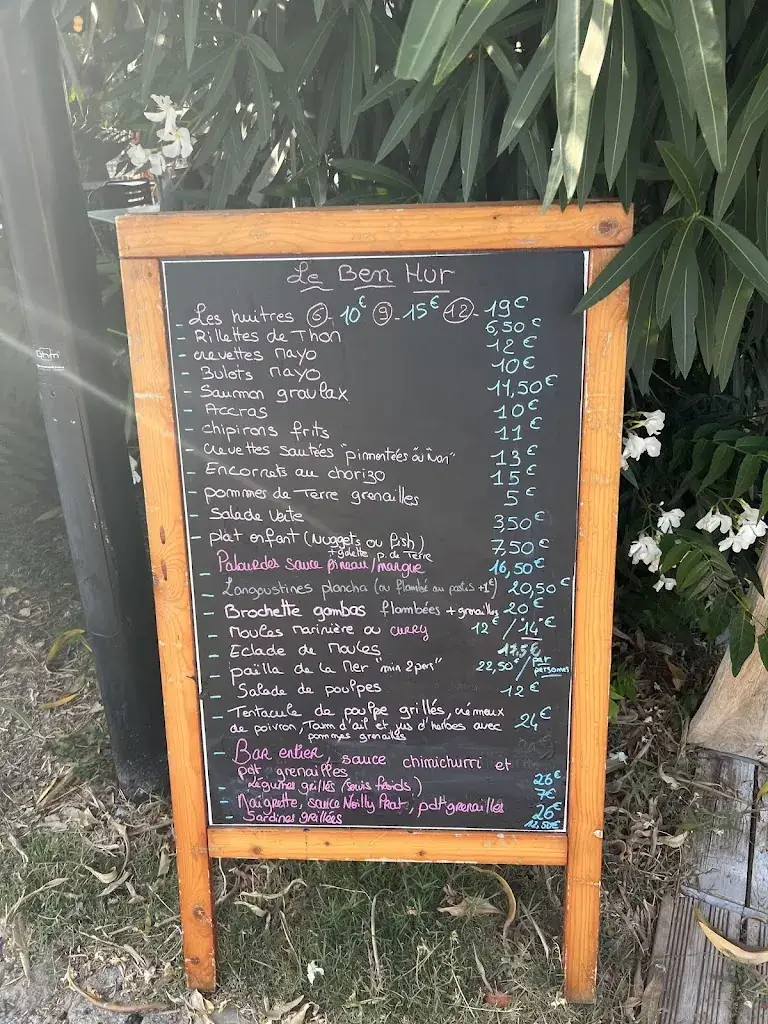 Le Ben Hur
- Les huitres ⑥ - 10€ ⑨ - 15€ ⑫ - 19€
- Rillettes de Thon 6,50€
- crevettes mayo 12€
- Bulots mayo 10€
- Saumon gravlax 11,50€
- Accras 10€
- chipirons frits 11€
- crevettes sautées "pimentées ou non" 13€
- Encornets au chorizo 15€
- pommes de Terre grenailles 5€
- Salade verte 3,50€
- plat enfant (Nuggets ou fish) 7,50€
+ galette p. de Terre
- Palourdes sauce pineau/mangue 16,50€
- Langoustines plancha (ou flambé au pastis +1€) 20,50€
- Brochette gambas flambées + grenailles 20€
- Moules marinière ou curry 12€ / 14€
- Eclade de Moules 17,5€
- païlla de la Mer "min 2 pers" 22,50€ / par personne
- Salade de poulpes 12€
- Tentacule de poulpe grillés, crémeux
de poivron, Toum d'ail et jus d'herbes avec 24€
pommes grenailles
- Bar entier, sauce chimichurri et
pdt grenailles 26€
- Légumes grillés (servis froids) 7€
- Maigrette, sauce Noilly Prat, pdt grenailles 26€
- Sardines grillées 12,50€